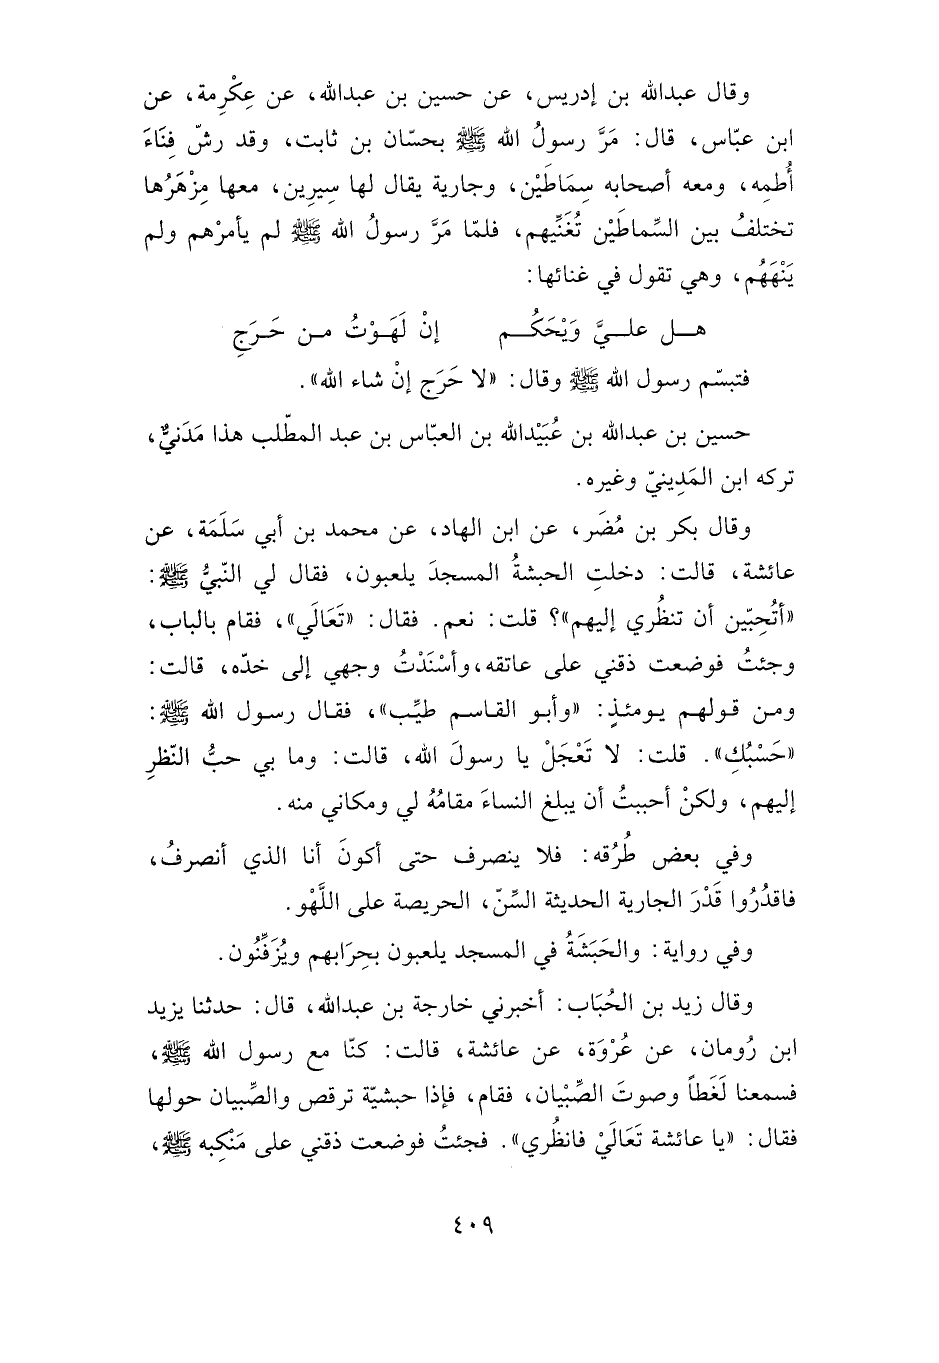 وقال عبدالله بن إدريس، عن حسين بن عبدالله، عن عِكْرِمة، عن
ابن عبّاس، قال: مَرَّ رسولُ الله ﷺ بحسّان بن ثابت، وقد رشّ فِنَاءَ
أُطمِه، ومعه أصحابه سِمَاطَيْن، وجارية يقال لها سِيرِين، معها مِزْهَرُها
تختلفُ بين السِّماطَيْن تُغَنِّيهم، فلمّا مَرَّ رسولُ الله ﷺ لم يأمرْهم ولم
يَنْهَهُم، وهي تقول في غنائها:
هـل علـيَّ وَيْحَكُـم إنْ لَهَـوْتُ مـن حَـرَجِ
فتبسّم رسول الله ﷺ وقال: «لا حَرَج إنْ شاء الله».
حسين بن عبدالله بن عُبَيْدالله بن العبّاس بن عبد المطّلب هذا مَدَنيٌّ،
تركه ابن المَدِينيّ وغيره.
وقال بكر بن مُضَر، عن ابن الهاد، عن محمد بن أبي سَلَمَة، عن
عائشة، قالت: دخلتِ الحبشةُ المسجدَ يلعبون، فقال لي النّبيُّ ﷺ:
«أتُحِبّين أن تنظُري إليهم»؟ قلت: نعم. فقال: «تَعَالَي»، فقام بالباب،
وجئتُ فوضعت ذقني على عاتقه، وأسْنَدْتُ وجهي إلى خدّه، قالت:
ومن قولهم يومئذٍ: «وأبو القاسم طيِّب»، فقال رسول الله ﷺ:
«حَسْبُكِ». قلت: لا تَعْجَلْ يا رسولَ الله، قالت: وما بي حبُّ النّظرِ
إليهم، ولكنْ أحببتُ أن يبلغ النساءَ مقامُهُ لي ومكاني منه.
وفي بعض طُرُقه: فلا ينصرف حتى أكونَ أنا الذي أنصرفُ،
فاقدُرُوا قَدْرَ الجارية الحديثة السِّنّ، الحريصة على اللَّهْو.
وفي رواية: والحَبَشَةُ في المسجد يلعبون بحِرَابهم ويُزَفِّنُون.
وقال زيد بن الحُبَاب: أخبرني خارجة بن عبدالله، قال: حدثنا يزيد
ابن رُومان، عن عُرْوَة، عن عائشة، قالت: كنّا مع رسول الله ﷺ،
فسمعنا لَغَطاً وصوتَ الصِّبْيان، فقام، فإذا حبشيّة ترقص والصِّبيان حولها
فقال: «يا عائشة تَعَالَيْ فانظُري». فجئتُ فوضعت ذقني على مَنْكِبه ﷺ،
٤٠٩